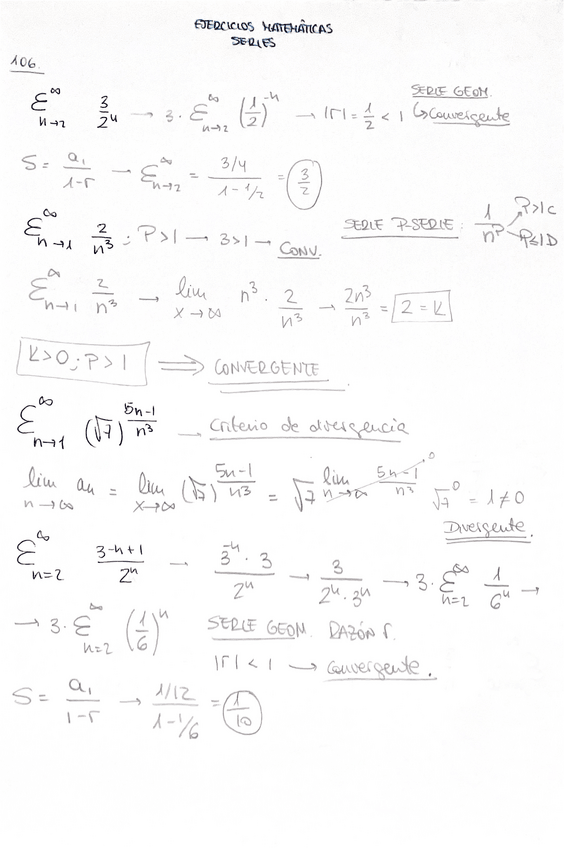 EJERCICIOS MATEMÁTICAS
SERIES
106.
Σ^∞_{n→2} 3/2^n → 3 · Σ^∞_{n→2} (1/2)^{-n} → |r| = 1/2 < 1 SERIE GEOM. ↳ Convergente
S = a₁/(1-r) → Σ^∞_{n→2} = (3/4)/(1-1/2) = 3/2
Σ^∞_{n→1} 2/n³ ; P>1 → 3>1 → CONV. SERIE P-SERIE: 1/n^p P>1 C P≤1 D
Σ^∞_{n→1} 2/n³ → lim_{x→∞} n³ · 2/n³ → 2n³/n³ = 2 = K
K>0 ; P>1 ⟹ CONVERGENTE
Σ^∞_{n→1} (√7)^{(5n-1)/n³} → Criterio de divergencia
lim_{n→∞} an = lim_{x→∞} (√7)^{(5n-1)/n³} = √7^{lim_{n→∞} (5n-1)/n³ → 0} √7^0 = 1 ≠ 0
Divergente.
Σ^∞_{n=2} 3^{-n+1}/2^n → 3^{-n} · 3/2^n → 3/(2^n · 3^n) → 3 · Σ^∞_{n=2} 1/6^n →
→ 3 · Σ^∞_{n=2} (1/6)^n SERIE GEOM. RAZÓN r.
|r| < 1 → Convergente.
S = a₁/(1-r) → (1/12)/(1-1/6) = 1/10